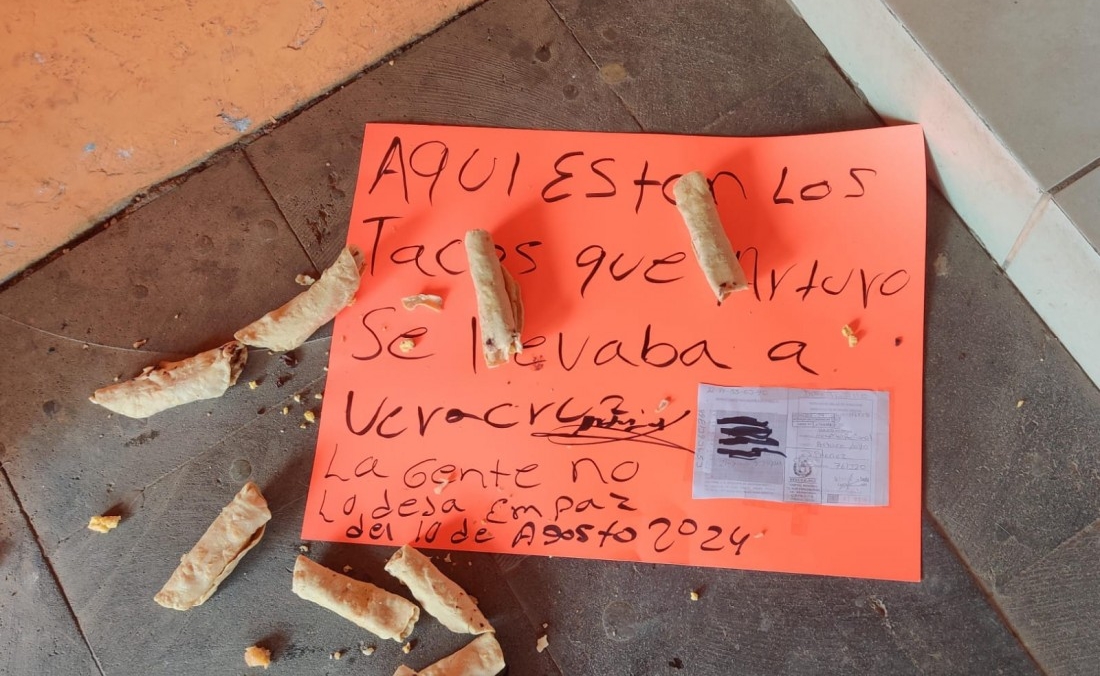 AQUI EStan Los
Tacos que Arturo
Se llevaba a
Veracruz
La Gente no
Lo desa Em paz
del 10 de Agosto 2024